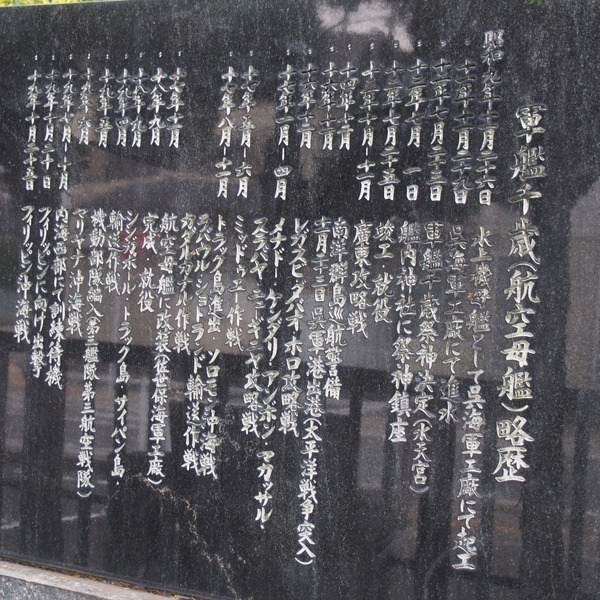 軍艦千歳(航空母艦)略歴
昭和九年十一月二十六日 水上機母艦として呉海軍工廠にて起工
〃十一年十一月二十九日 呉海軍工廠にて進水
〃十二年十月二十三日 軍艦千歳祭神決定(水天宮)
〃十三年七月一日 艦内神社に祭神鎮座
〃十三年七月二十五日 竣工 就役
〃十三年十月-十一月 廣東攻略戦
〃十四年十一月 南洋群島巡航警備
〃十六年十一月 十一月二十三日呉軍港出港(太平洋戦争突入)
〃十六年十二月 レガスピ・ダバオ・ホロ攻略戦
〃十七年一月-四月 メナド・ケンダリ・アンボン・マカッサル・
スラバヤ・ニューギニヤ攻略戦
〃十七年五月-六月 ミッドウェー作戦
〃十七年八月-十一月 トラック島進出・ソロモン沖海戦
ラバウル・ショートランド輸送作戦
ガダルカナル作戦
〃十七年十一月 航空母艦に改装(佐世保海軍工廠)
〃十八年九月 完成 就役
〃十九年一月 シンガポール・トラック島・サイパン島
〃十九年二月 輸送作戦
〃十九年三月 機動部隊編入(第三艦隊第三航空戦隊)
〃十九年六月 マリヤナ沖海戦
〃十九年七月-十月 内海西部にて訓練待機
〃十九年十月二十日 フィリッピンに向け出撃
〃十九年十月二十五日 フィリッピン沖海戦